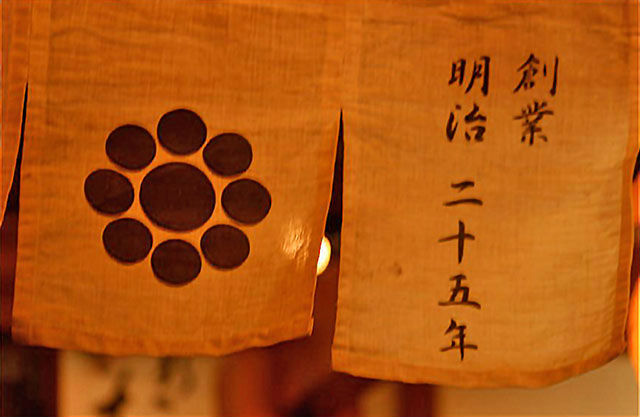 創業
明治 二十五年